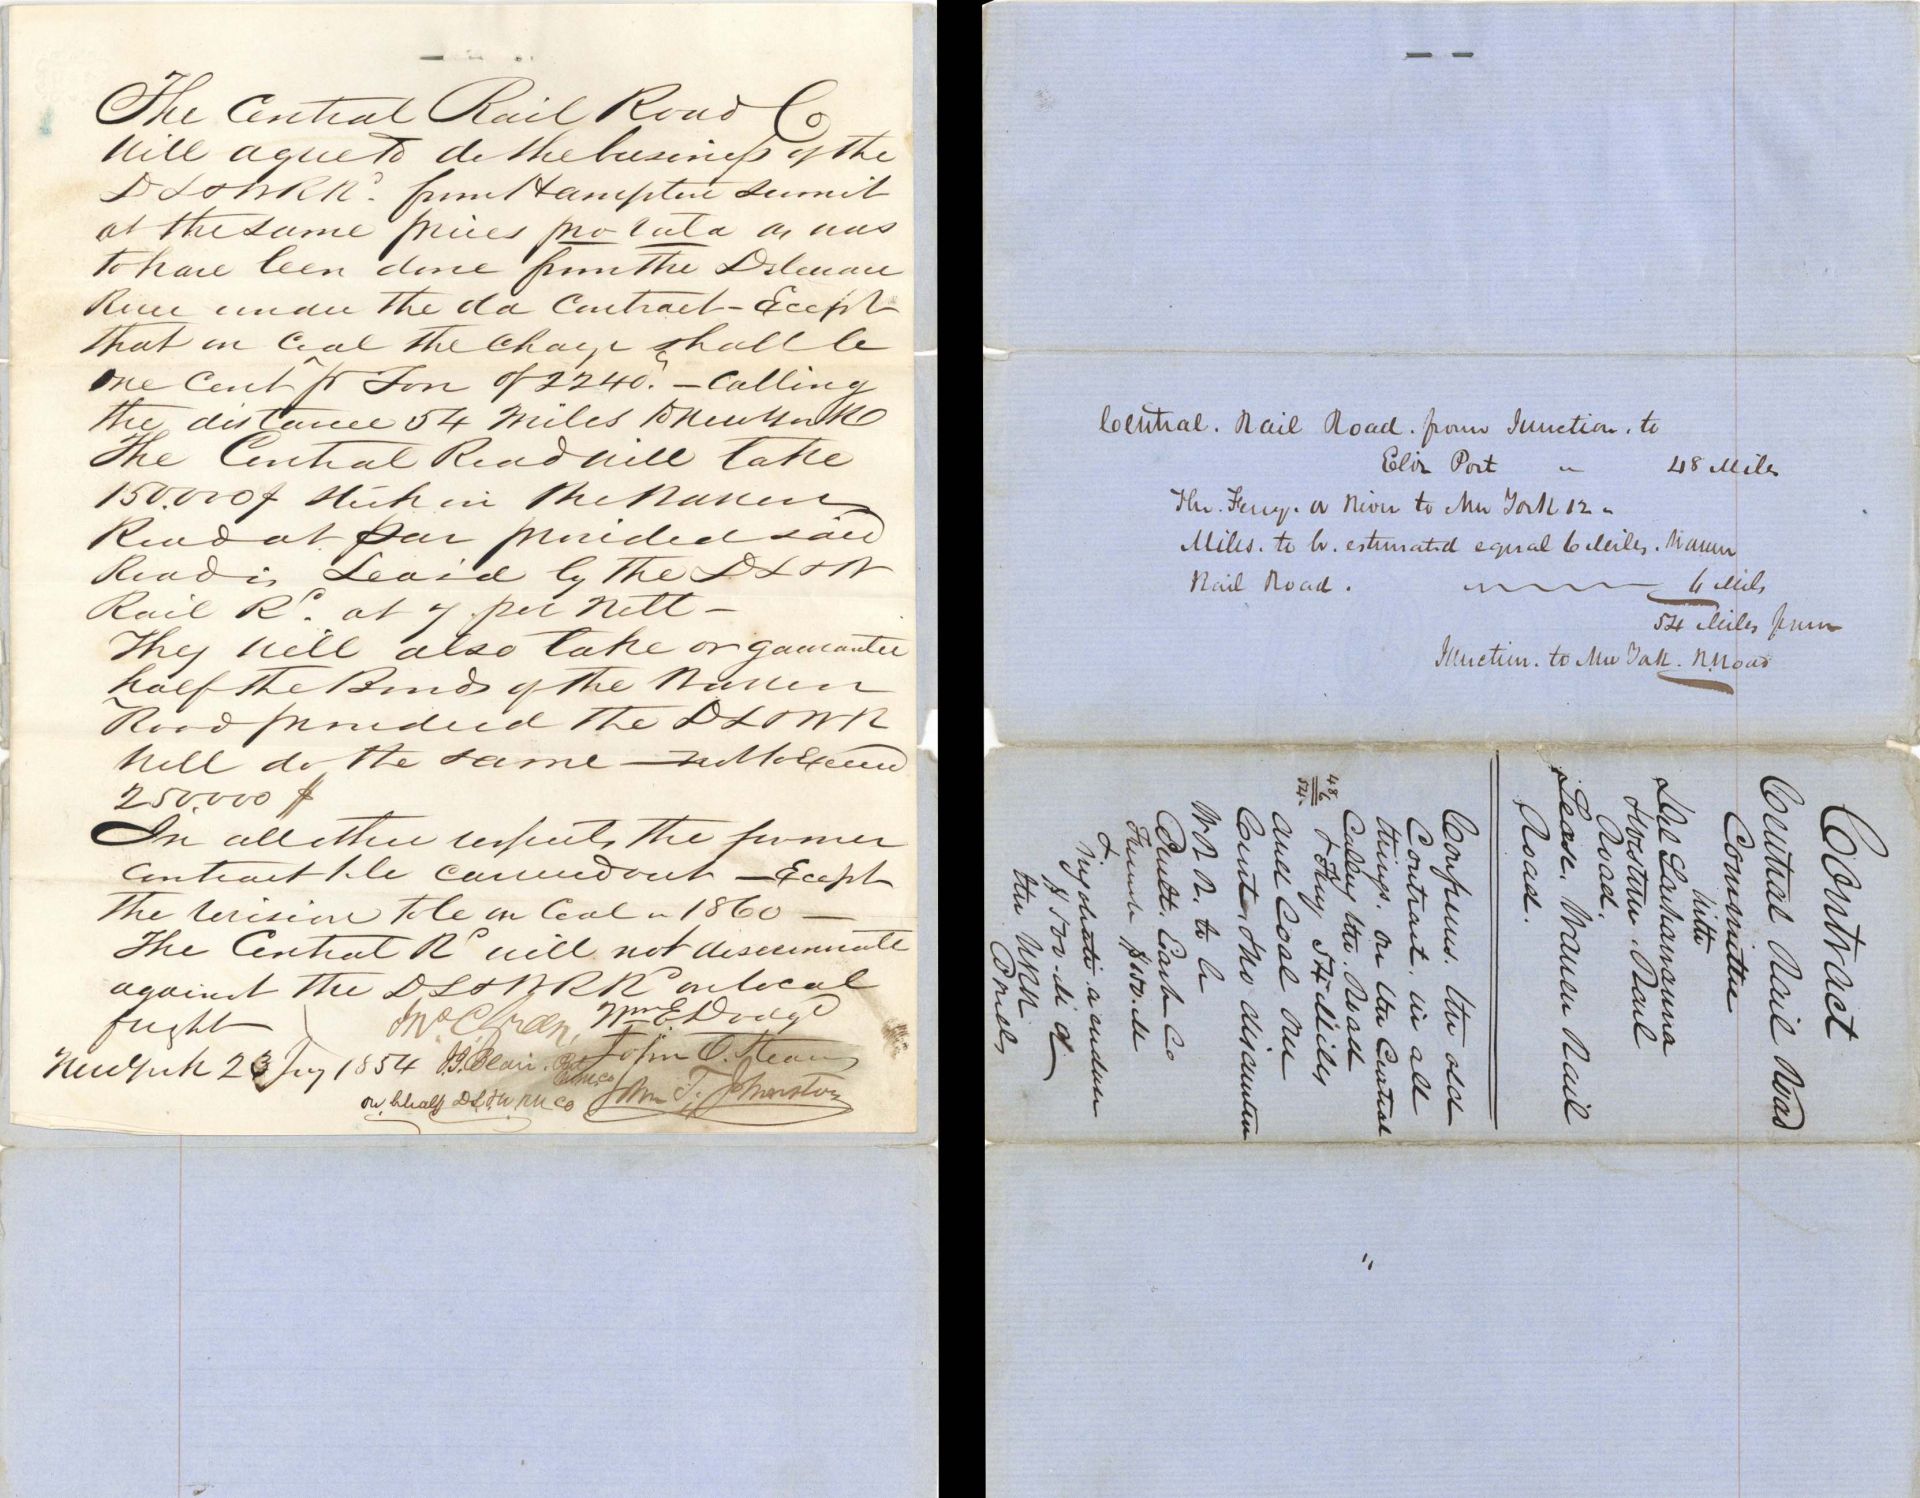 The Central Rail Road Co
Will agree to do the business of the
D L & W R Rd. from Hampton Sumit
at the same prices pro rata as was
to have been done from the Delaware
River under the old Contract – Except
that on Coal the Charge shall be
one Cent pr Ton of 2240. – Calling
the distance 54 Miles to New York
The Central Road will take
150.000$ Stock in the Warren
Road at par provided said
Road is Leased by the D L & W
Rail Rd. at 7 per Nett –
They will also take or guarantee
half the Bonds of the Warren
Road provided the D L & W R
Will do the same – not to Exceed
250.000 $
In all other respects the former
Contract to be carried out – Except
the revision to be on Coal in 1860 –
The Central Rd will not discriminate
against the D L & W R Rd on local
freight
Jno C Green, Wm E. Dodge
New York 23 Jany 1854 J. I. Blair. John O. Stearns
on behalf D L & W RR Co Jno T. Johnston
Central. Rail Road. from Junction. to
Eliz Port " 48 Miles
The. Ferry. or River to New York 12
Miles. to be. estimated equal 6 Miles. Warren
Rail Road. 6 Miles
54 Miles from
Junction. to New York. R. Road
Contract
Central Rail Road
Committee
With
Del Lackawanna
Western Rail
Road.
Lease. Warren Rail
Road.
Confirms. the old
Contract. in all
things. on the Central
Calling the. Road
48
6
54.
& Fery 54 Miles
and Coal
Cent.
W R R. to be
Built. Each Co
Furnish $100.
&
$100.
the WRR
Bonds